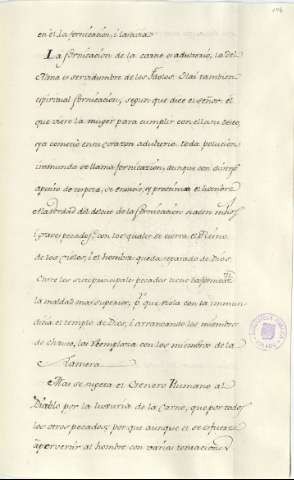 196
en él la fornicación, i laxuria
La fornicacion de la carne es adulterio, la del
Alma es servidumbre de los Idolos. Hai tambien
espiritual fornicacion, segun que dice el señor: el
que viere la muger para cumplir con ella su deseo,
ya cometió en su corazon adulterio. toda polucion
immunda se llama fornicacion, aunque con
de torpeza, se
del deleite de la fornicacion nacen
graves pecados, con los quales se cierra el Reino
de los cielos, i el hombre queda separado de Dios.
Entre los principales pecados tiene la fornicn.
la maldad mas superior, pr. que viola con la immun
dicia el templo de Dios, i arrancando los miembros
de Christo, los con los miembros de la
Ramera.
Mas se sujeta el Genero Humano al
Diablo por la luxuria de la Carne, que por todos
los otros pecados; por que aunque el se esfuerce
a pervertir al hombre con varias tentaciones,